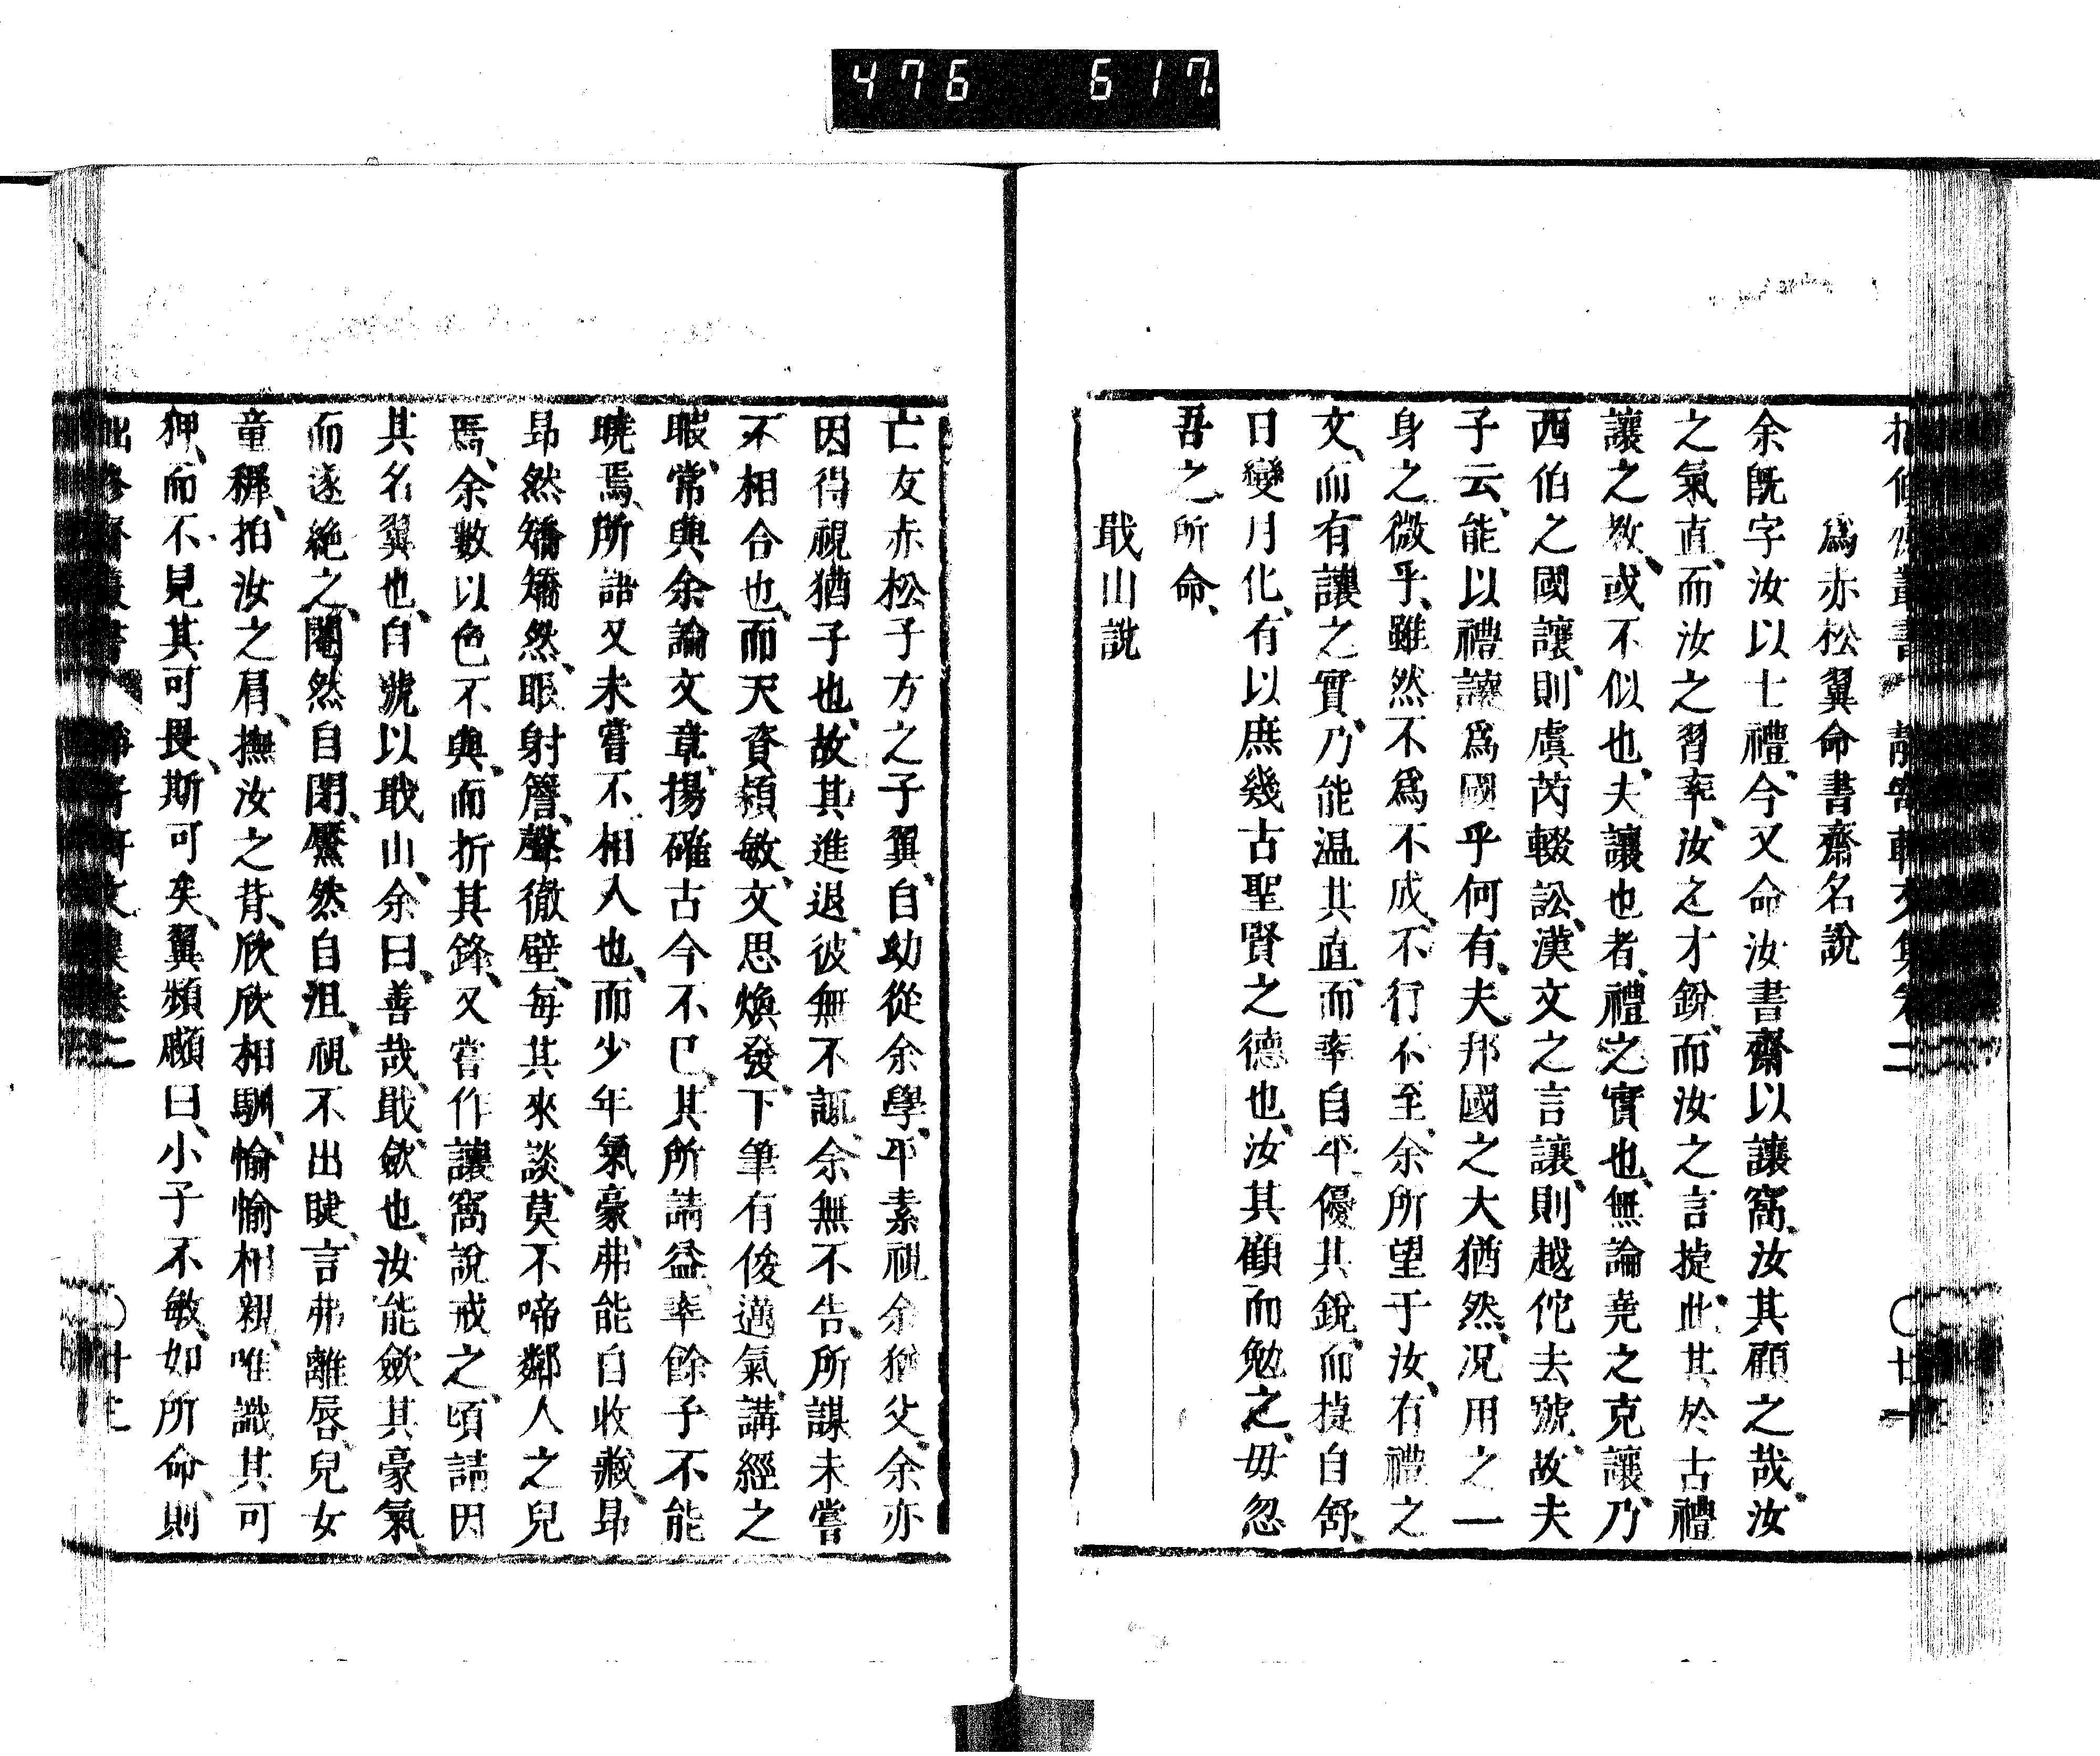 476 617
爲赤松翼命書齋名說
余旣字汝以士禮、今又命汝書齋以讓窩、汝其顧之哉、汝
之氣直、而汝之習率、汝之才銳、而汝之言捷、此其於古禮
讓之教、或不似也、夫讓也者、禮之實也、無論堯之克讓、乃
西伯之國讓、則虞芮輟訟、漢文之言讓、則越佗去號、故夫
子云、能以禮讓爲國乎何有、夫邦國之大猶然、況用之一
身之微乎、雖然不爲不成、不行不至、余所望于汝、有禮之
文、而有讓之實、乃能温其直、而率自平、優其銳、而捷自舒、
日變月化、有以庶幾古聖賢之德也、汝其顧而勉之、毋忽
吾之所命、
戢山說
亡友赤松子方之子翼、自幼從余學、平素視余猶父、余亦
因得視猶子也、故其進退、彼無不諏、余無不告、所謀未嘗
不相合也、而天資穎敏、文思煥發、下筆有俊邁氣、講經之
暇、常與余論文章、揚確古今不已、其所請益、率餘子不能
曉焉、所語又未嘗不相入也、而少年氣豪、弗能自收藏、昂
昂然矯矯然、眼射簷、聲徹壁、每其來談、莫不啼鄰人之兒
焉、余數以色不與、而折其鋒、又嘗作讓窩說戒之、頃請因
其名翼也、自號以戢山、余曰、善哉、戢、斂也、汝能斂其豪氣、
而遂絶之、闇然自閉、黶然自沮、視不出睫、言弗離唇、兒女
童穉、拍汝之肩、撫汝之背、欣欣相馴、愉愉相親、唯識其可
狎、而不見其可畏、斯可矣、翼頻顣曰、小子不敏、如所命、則